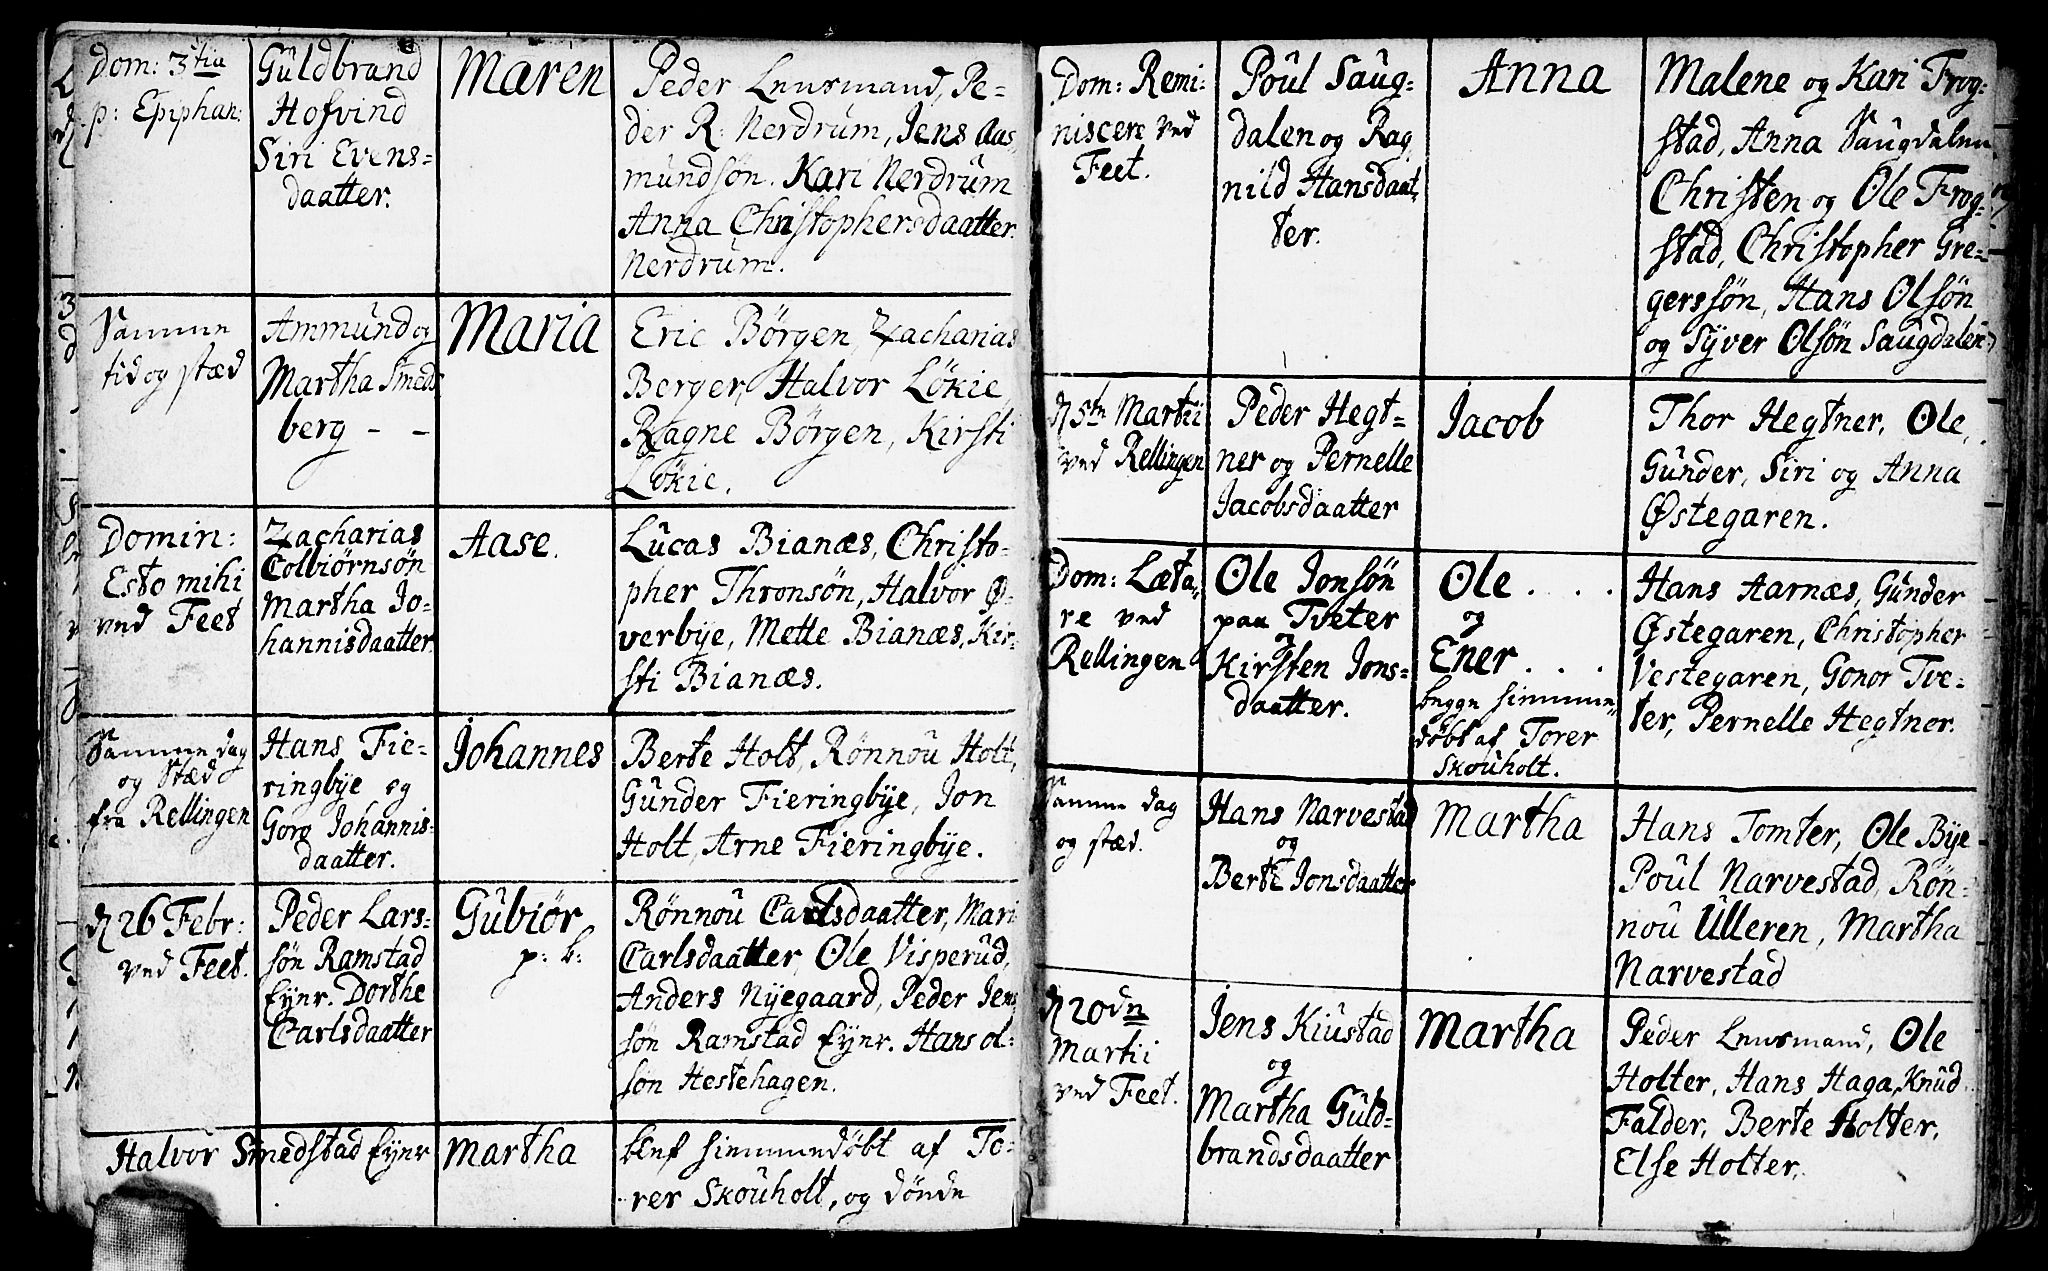 Dom: 3tia
p: Epiphan:
Güldbrand
Hofvind
Siri Evens=
daatter.
Maren
Peder Lensmand, Pe=
der R: Nerdrum, Jens Aas
mundsøn. Kari Nerdrum
Anna Christophersdaatter
Nerdrum.
Samme
tid og stæd
Ammund og
Martha Smeds
berg - -
Maria
Eric Børgen, Zacharias
Berger, Halvor Løkie,
Ragne Børgen, Kirsti
Løkie.
Domin:
Esto mihi
ved Feet
Zacharias
Colbiørnsøn
Martha Jo=
hannisdaatter
Aase.
Lucas Bianæs, Christo=
pher Thronsøn, Halvor Ø=
verbye, Mette Bianæs, Kir=
sti Bianæs.
Samme dag
og Stæd
fra Rellingen
Hans Fie=
ringbye og
Gorg Johannis=
daatter.
Johannes
Berte Holt, Rønnou Holt,
Gunder Fieringbye, Jon
Holt, Arne Fieringbye.
d 26 Febr:
ved Feet.
Peder Lars=
søn Ramstad
Eynr. Dorthe
Carlsdaatter
Gubiør
p: b:
Rønnou Carlsdaatter, Mari
Carlsdaatter, Ole Visperud,
Anders Nyegaard, Peder Jens
søn Ramstad Eynr. Hans ol=
søn Hestehagen.
Halvor Smedstad Eynr
Martha
blef hiemmedøbt af To=
rer Skouholt, og døde
Dom: Remi=
niscere ved
Feet.
Poul Saug=
dalen og Rag
nild Hansdaat
ter.
Anna
Malene og Kari Frog=
stad, Anna Saugdalen
Christen og Ole Frog=
stad, Christopher Gre=
gerssøn, Hans Olsøn
og Syver Olsøn Saugdalen
d 5te Martii
ved Rellingen
Peder Hegt=
ner og Pernelle
Jacobsdaatter
Jacob
Thor Hegtner, Ole,
Gunder, Siri og Anna
Østegaren.
Dom: Læta=
re ved
Rellingen
Ole Jonsøn
paa Tveter
Kirsten Jons=
daatter.
Ole . . .
og
Ener . . .
begge hiemme=
døbt af Torer
Skouholt.
Hans Aarnæs, Gunder
Østegaren, Christopher
Vestegaren, Gonor Tve=
ter, Pernelle Hegtner.
Samme dag
og stæd.
Hans Narvestad
og
Berte Jonsdaatter
Martha
Hans Tomter, Ole Bye
Poul Narvestad, Røn=
nou Ulleren, Martha
Narvestad
d 20de
Martii
ved Feet.
Jens Kiustad
og
Martha Guld=
brandsdaatter
Martha
Peder Lensmand, Ole
Holter, Hans Haga, Knud
Falder, Berte Holter,
Else Holter.